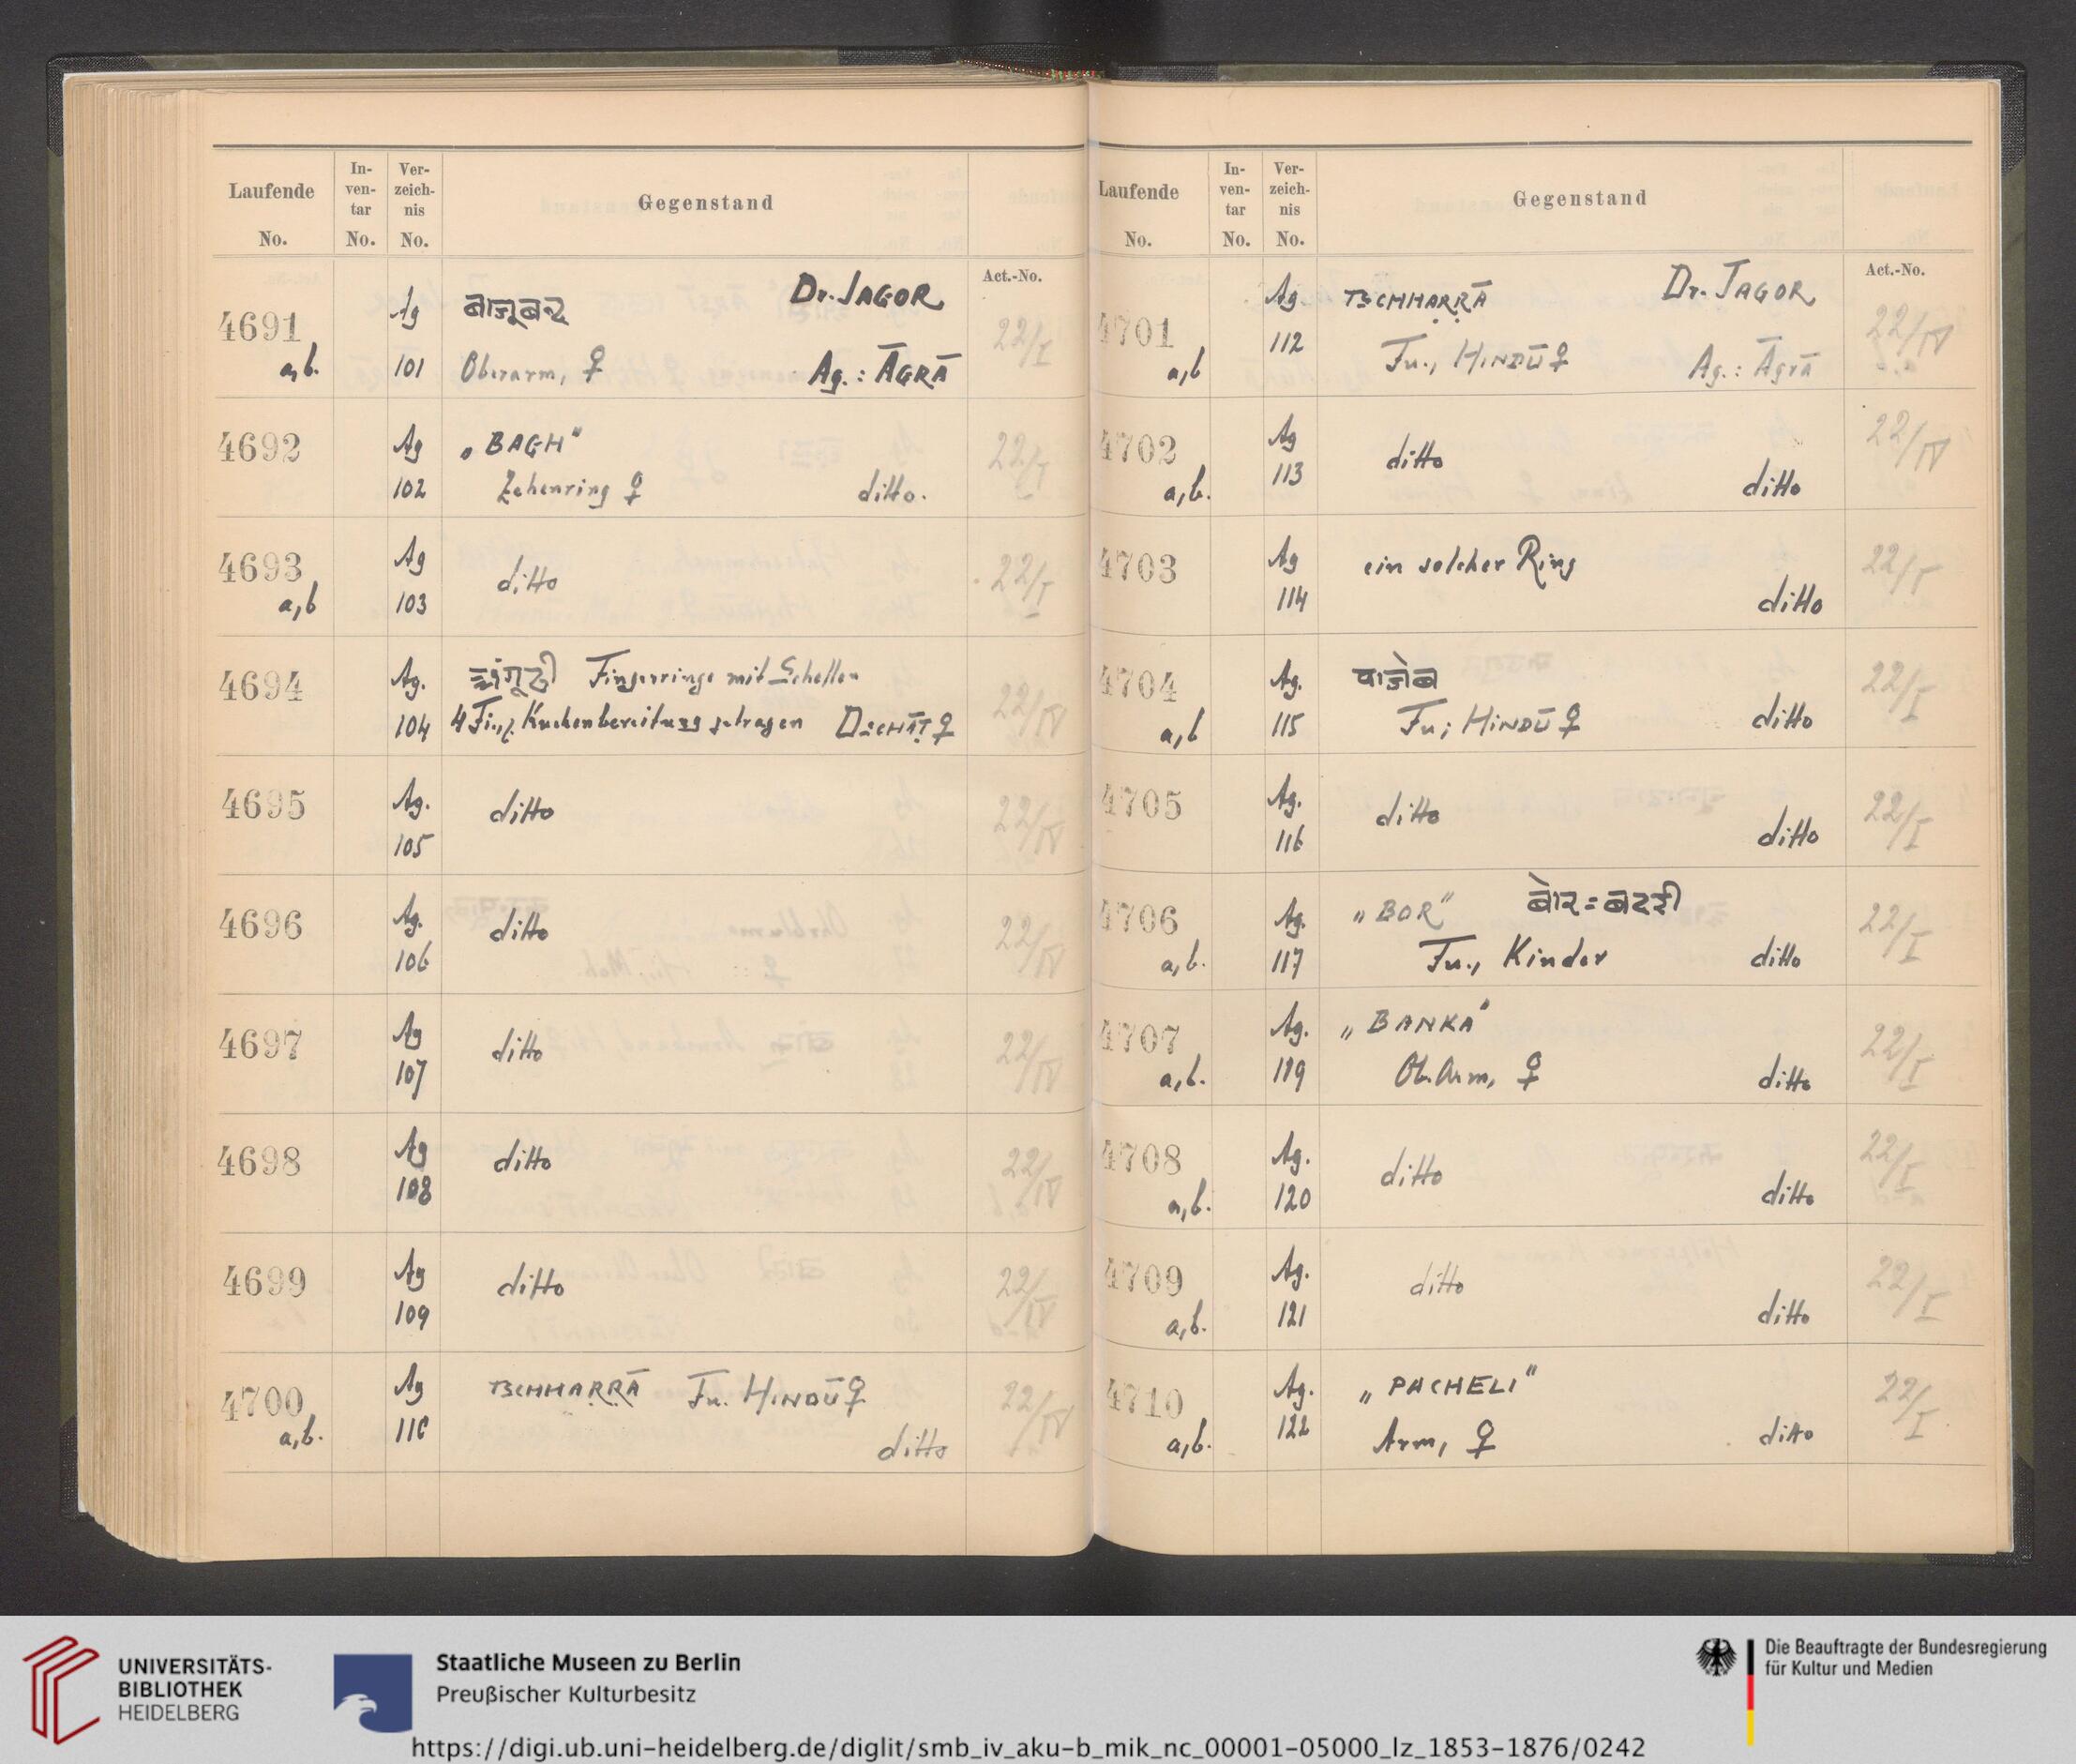 Laufende No.
In-ven-tar No.
Ver-zeich-nis No.
Gegenstand
Act.-No.
4691 a,b. Ag 101 बाजूबन्द Dr. JAGOR 22/I
Oberarm, ♀ Ag.: ĀGRĀ
4692 Ag 102 „BAGH" 22/I
Zehenring ♀ ditto.
4693 a,b Ag 103 ditto 22/I
4694 Ag. 104 अंगूठी Fingerringe mit Schellen 22/IV
4 Fing. Kuchenbereitung getragen DSCHĀṬ ♀
4695 Ag. 105 ditto 22/IV
4696 Ag. 106 ditto 22/IV
4697 Ag 107 ditto 22/IV
4698 Ag 108 ditto 22/IV
4699 Ag 109 ditto 22/IV
4700 a,b. Ag 110 TSCHHAṚṚĀ Fu. HINDŪ ♀ 22/IV
ditto
Laufende No.
In-ven-tar No.
Ver-zeich-nis No.
Gegenstand
Act.-No.
4701 a,b Ag. 112 TSCHHAṚṚĀ Dr. JAGOR 22/IV
Fu., HINDŪ ♀ Ag.: Āgrā
4702 a,b. Ag 113 ditto ditto 22/IV
4703 Ag 114 ein solcher Ring ditto 22/I
4704 a,b Ag. 115 पाजेब 22/I
Fu; HINDŪ ♀ ditto
4705 Ag. 116 ditto ditto 22/I
4706 a,b. Ag. 117 „BOR" बोर = बदरी 22/I
Fu., Kinder ditto
4707 a,b. Ag. 119 „BANKA" 22/I
Ob. Arm, ♀ ditto
4708 a,b. Ag. 120 ditto ditto 22/I
4709 a,b. Ag. 121 ditto ditto 22/I
4710 a,b. Ag. 122 „PACHELI" 22/I
Arm, ♀ ditto
UNIVERSITÄTS-
BIBLIOTHEK
HEIDELBERG
Staatliche Museen zu Berlin
Preußischer Kulturbesitz
Die Beauftragte der Bundesregierung
für Kultur und Medien
https://digi.ub.uni-heidelberg.de/diglit/smb_iv_aku-b_mik_nc_00001-05000_lz_1853-1876/0242